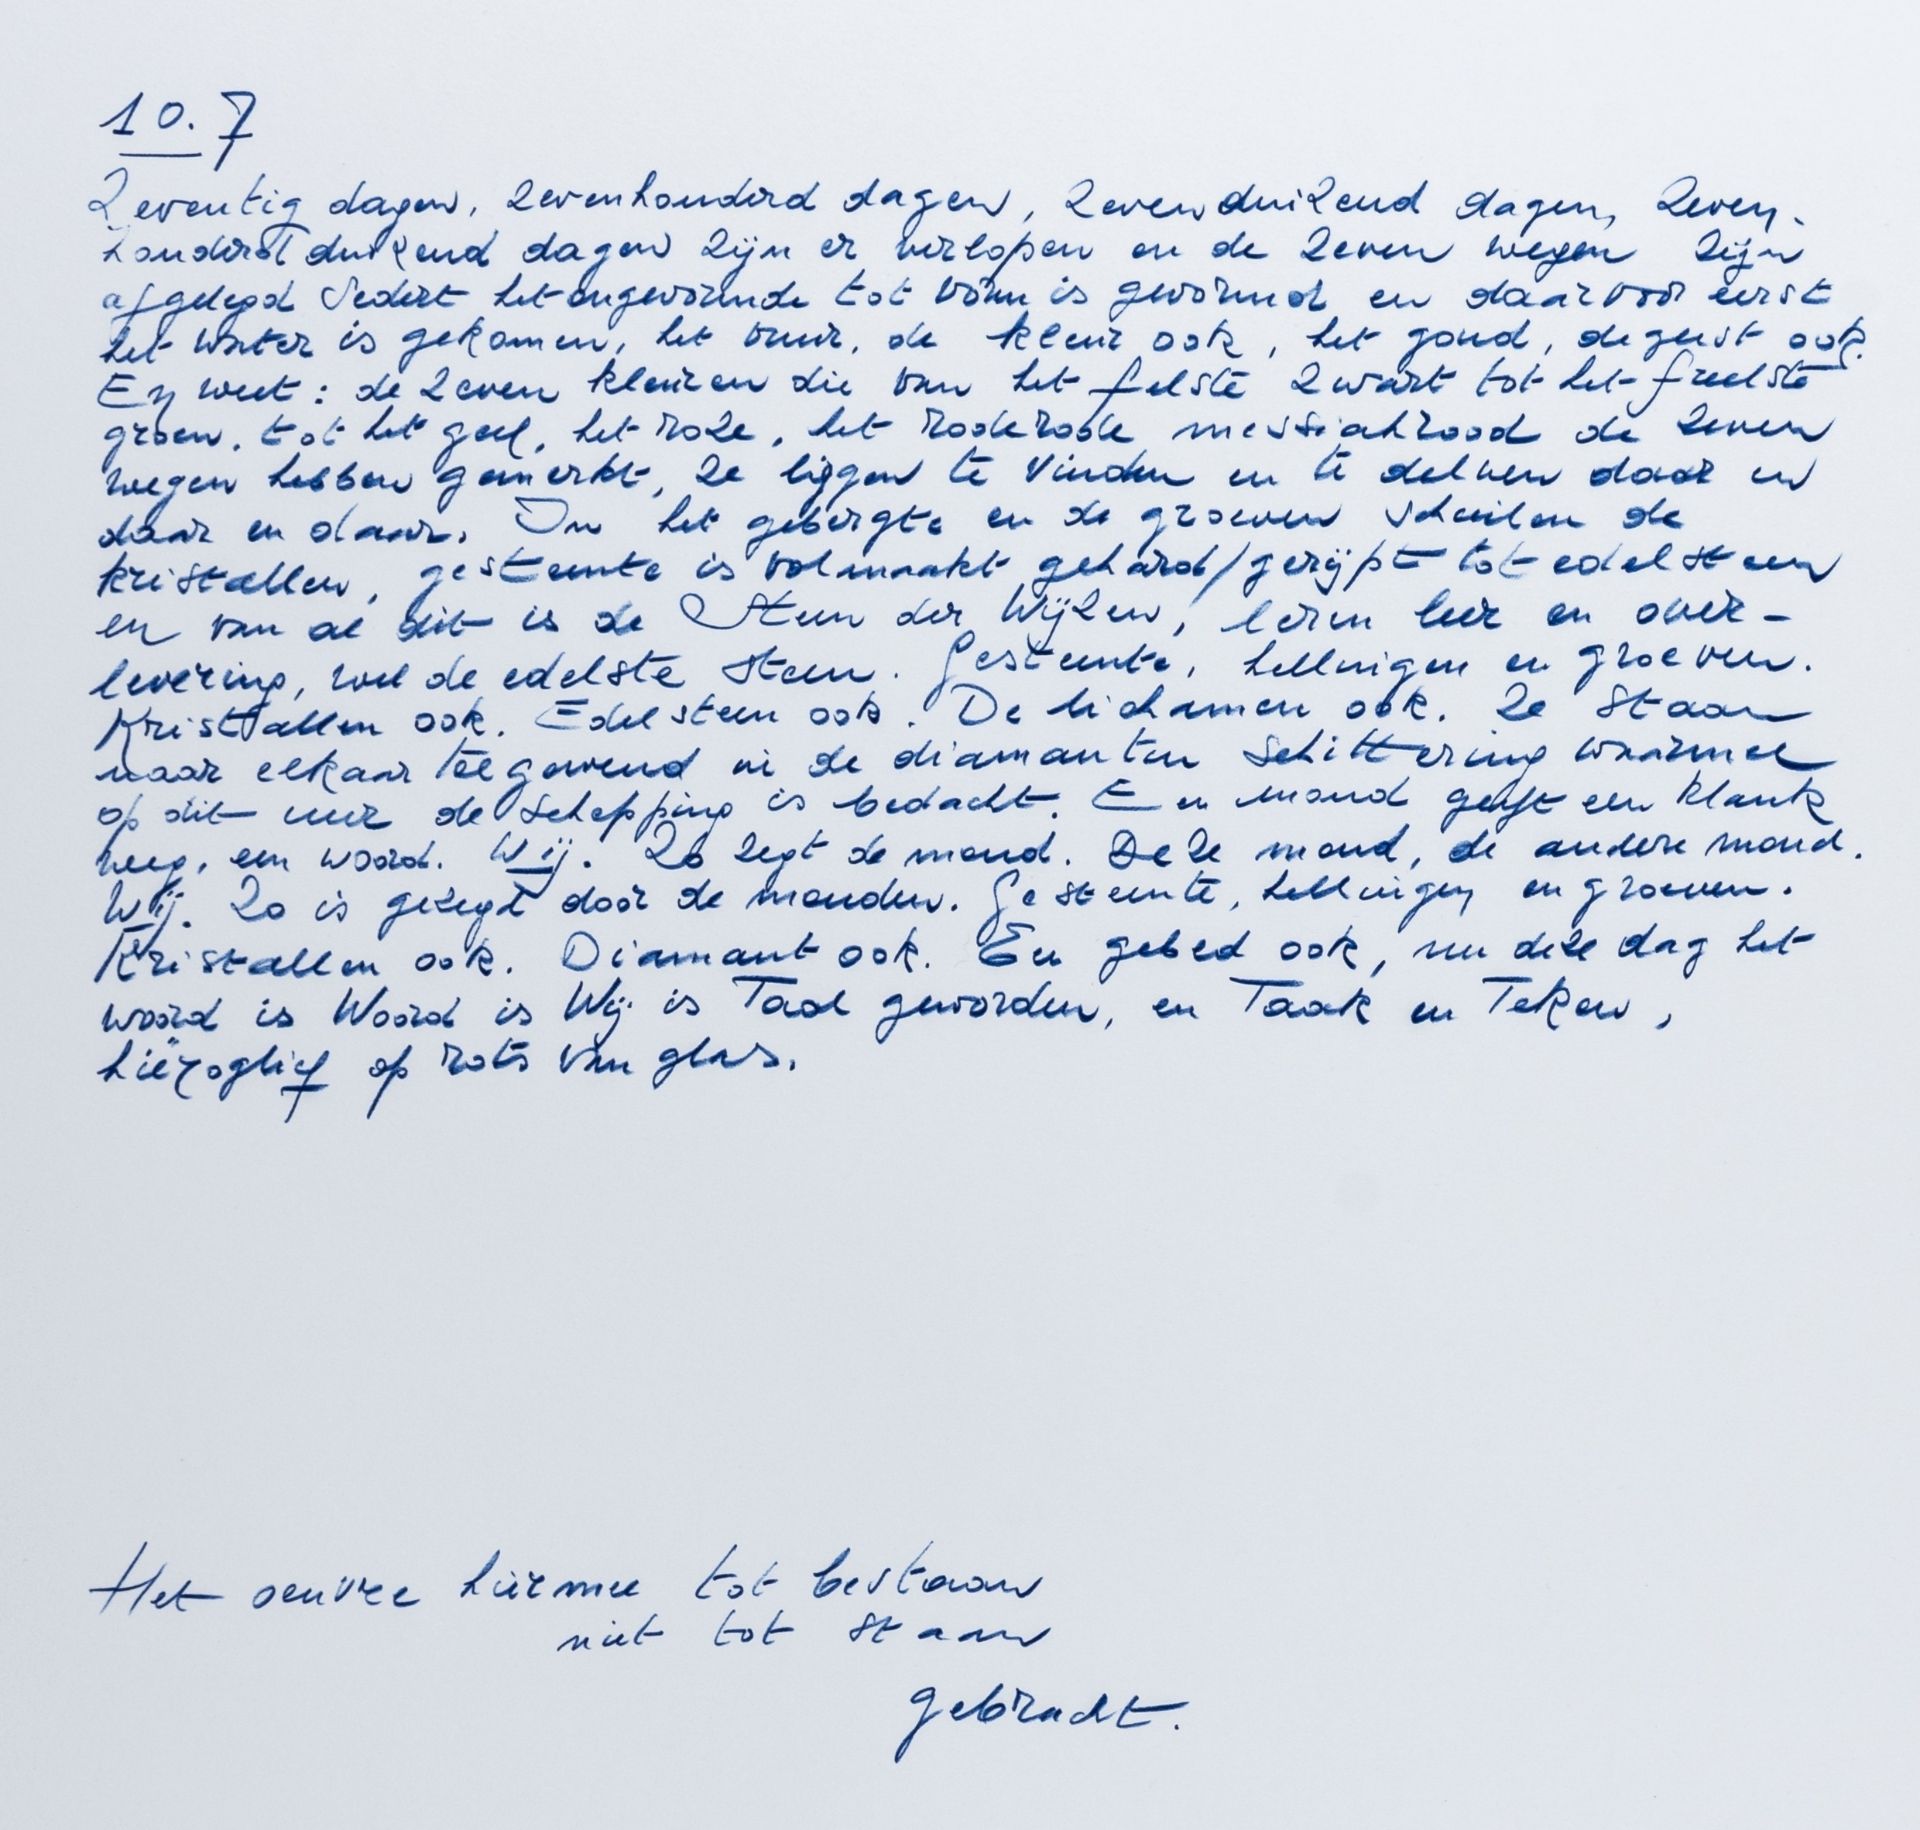 10.7
Zeventig dagen, zevenhonderd dagen, zevenduizend dagen, zeven-
honderdduizend dagen zijn er verlopen en de zeven wegen zijn
afgelegd sedert het ongevormde tot vorm is gevormd en daarvoor eerst
het water is gekomen, het vuur, de kleur ook, het goud, de geest ook.
En weet: de zeven kleuren die van het felste zwart tot het freelste
groen, tot het geel, het roze, het roderode messiahrood de zeven
wegen hebben gemerkt, ze liggen te vinden en te delven daar en
daar en daar. In het gebergte en de groeven schuilen de
kristallen, gesteente is volmaakt gehard/gerijpt tot edelsteen
en van al dit is de Steen der Wijzen, leren leer en over-
levering, wel de edelste steen. Gesteente, hellingen en groeven.
Kristallen ook. Edelsteen ook. De lichamen ook. Ze staan
naar elkaar toegewend in de diamanten schittering waarmee
op dit uur de Schepping is bedacht. Een mond geeft een klank
weg, een woord. Wij. Zo zegt de mond. Deze mond, de andere mond.
Wij. Zo is gezegd door de monden. Gesteente, hellingen en groeven.
Kristallen ook. Diamant ook. Een gebed ook, nu deze dag het
woord is Woord is Wij is Taal geworden, en Taak en Teken,
hiëroglief op rots van glas.
Het oeuvre hiermee tot bestaan
niet tot staan
gebracht.